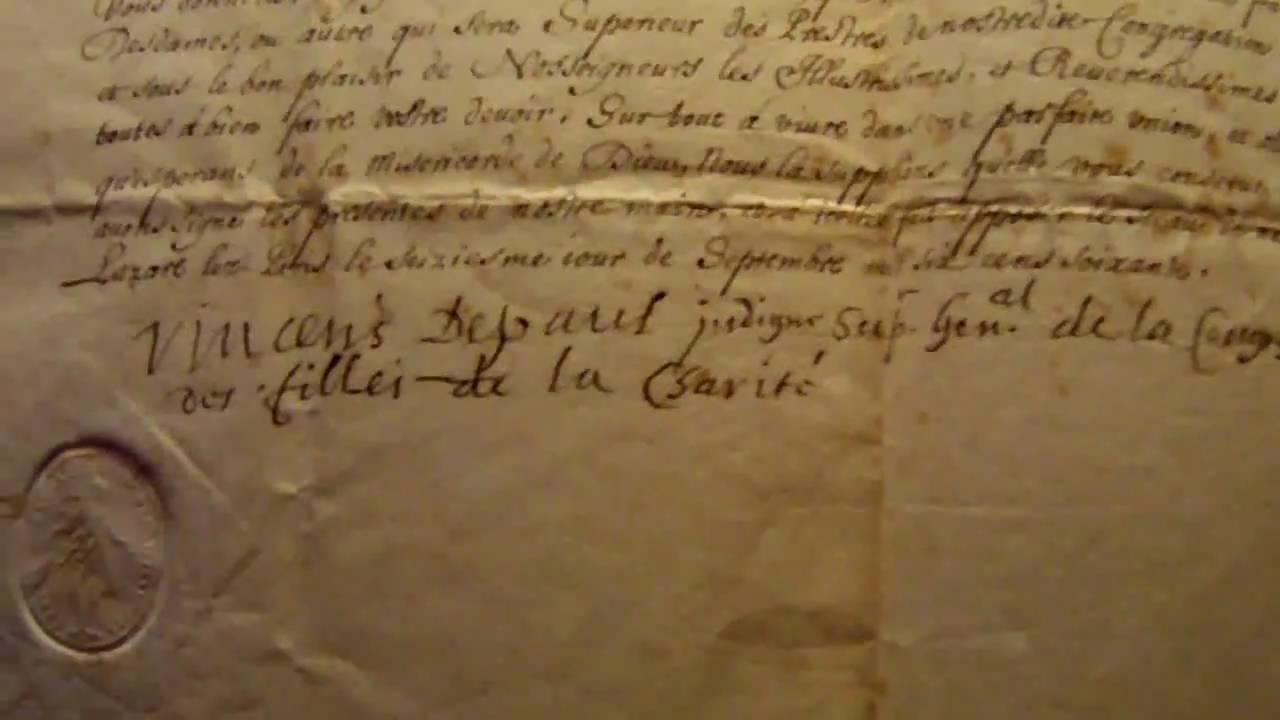 Desdames, ou autre qui sera Superieur des Prestres de nostredite Congregation
et sous le bon plaisir de Nosseigneurs les Illustrissimes, et Reverendissimes
toutes à bien faire vostre devoir, Sur tout à vivre dans une parfaite union, et
qu'esperans de la misericorde de Dieu, Nous la supplions qu'elle vous conserve
avons signé les presentes de nostre main, et fait apposer le
Lazare lez Paris le seiziesme iour de Septembre mil six cens soixante.
Vincens Depaul jndigne Sup.r Gen.al de la Cong.
des filles de la Charité